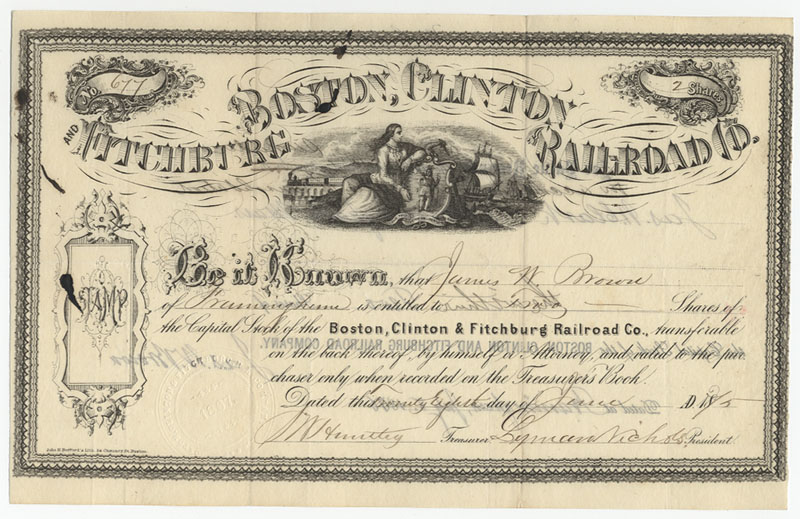 No. 677
2 Shares
BOSTON, CLINTON
AND FITCHBURG RAILROAD CO.
Be it Known, that James W Brown
of Framingham is entitled to Two Shares of
the Capital Stock of the Boston, Clinton & Fitchburg Railroad Co., transferable
on the back thereof, by himself or Attorney, and valid to the pur
chaser only when recorded on the Treasurer's Book.
STAMP
Dated this twenty eighth day of June A.D. 18
Treasurer Lyman Nichols President
BOSTON CLINTON AND FITCHBURG RAILROAD COMPANY